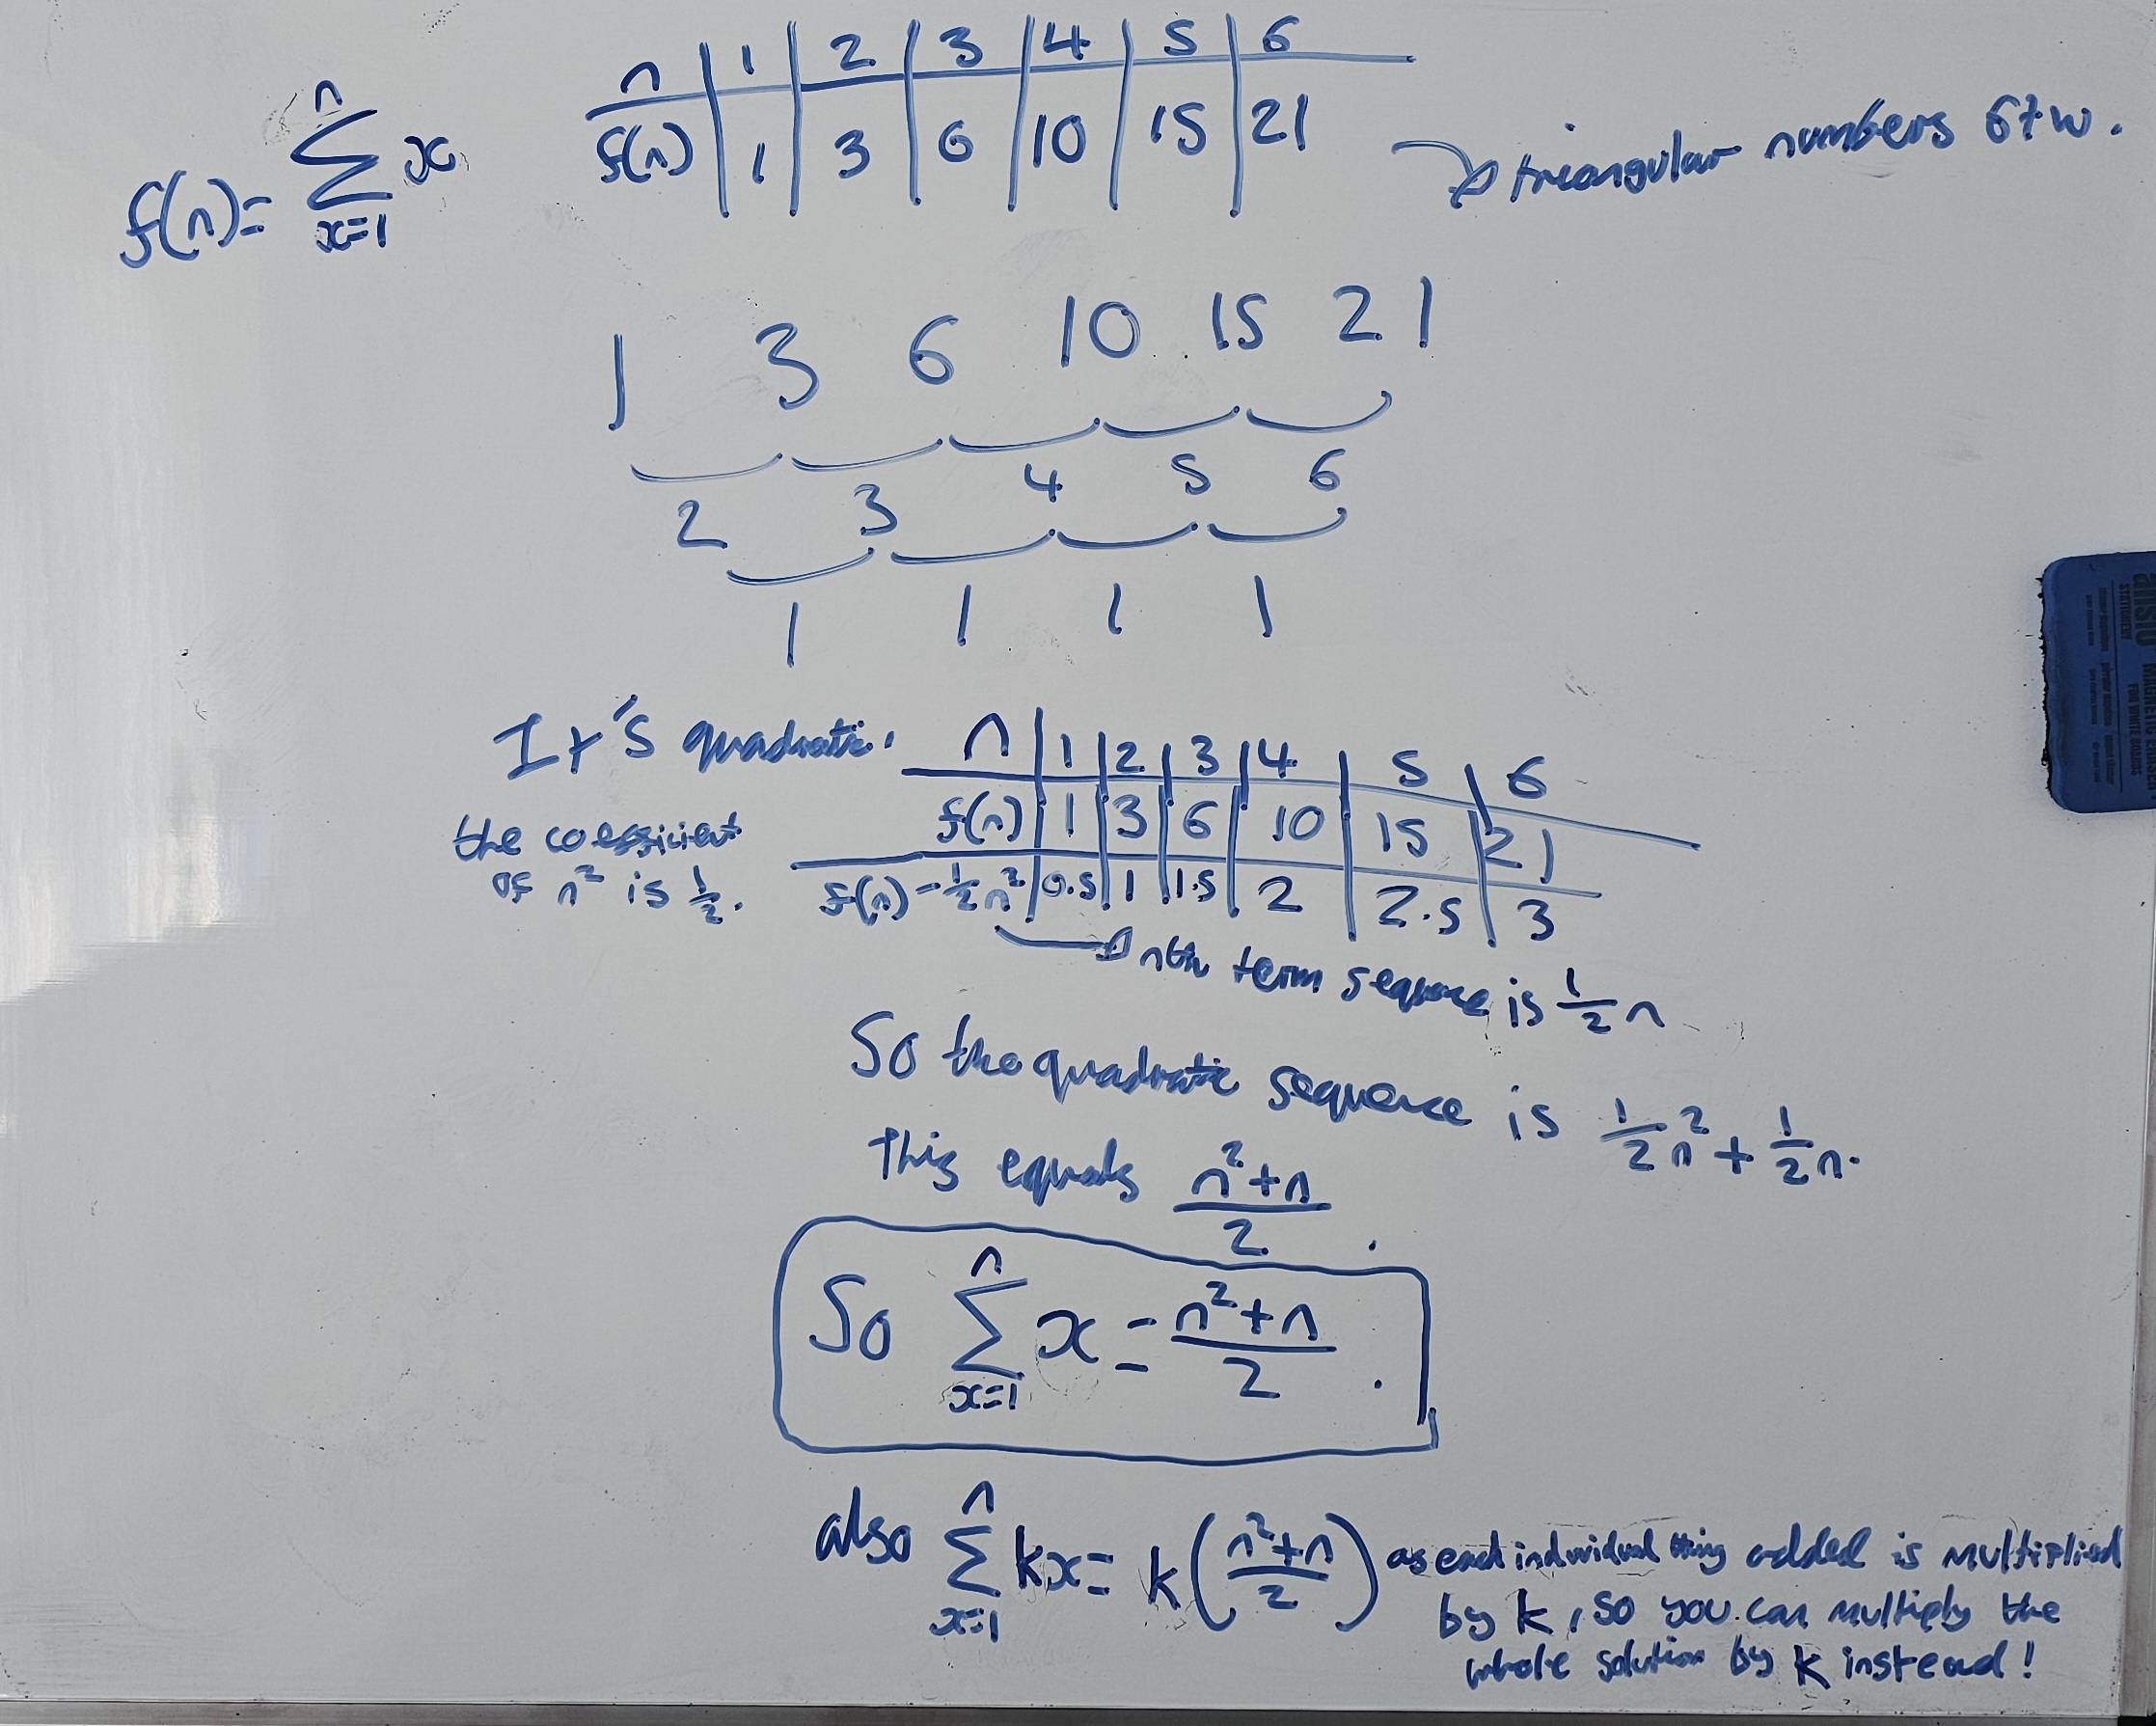 f(n)= n ∑ x=1 x
n | 1 | 2 | 3 | 4 | 5 | 6
f(n) | 1 | 3 | 6 | 10 | 15 | 21
triangular numbers btw.
1 3 6 10 15 21
2 3 4 5 6
1 1 1 1
It's quadratic.
the coefficient
of n² is 1/2.
n | 1 | 2 | 3 | 4 | 5 | 6
f(n) | 1 | 3 | 6 | 10 | 15 | 21
f(n)-1/2n² | 0.5 | 1 | 1.5 | 2 | 2.5 | 3
nth term sequence is 1/2n
So the quadratic sequence is 1/2n²+1/2n.
This equals n²+n/2.
So n ∑ x=1 x = n²+n/2.
also n ∑ x=1 kx= k(n²+n/2) as each individual thing added is multiplied
by k, so you can multiply the
whole solution by k instead!
STATIONERY